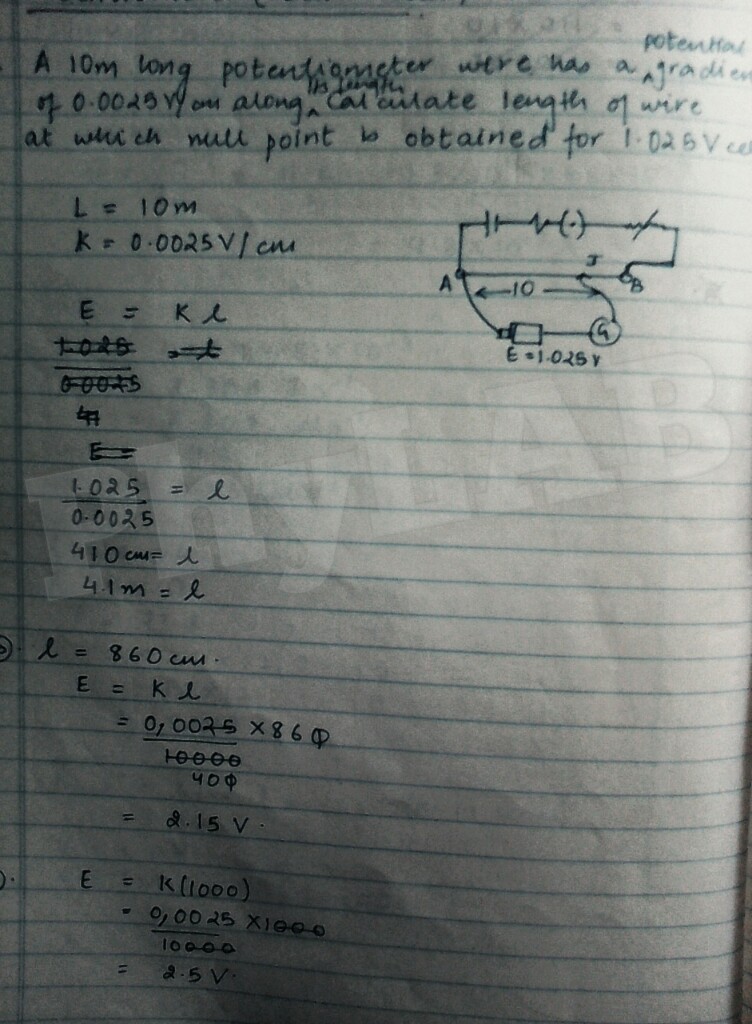 A 10m long potentiometer wire has a potential gradien
of 0.0025 V/cm along its length Calculate length of wire
at which null point is obtained for 1.025 V cel
L = 10m
K = 0.0025 V/cm
J
A
10
B
G
E = 1.025 V
E = K l
1.025 = l
0.0025
E =
1.025 = l
0.0025
410 cm = l
4.1m = l
l = 860 cm.
E = K l
= 0,0025 × 860
10000
400
= 2.15 V.
E = K(1000)
= 0,0025 × 1000
10000
= 2.5 V.
PhyLAB